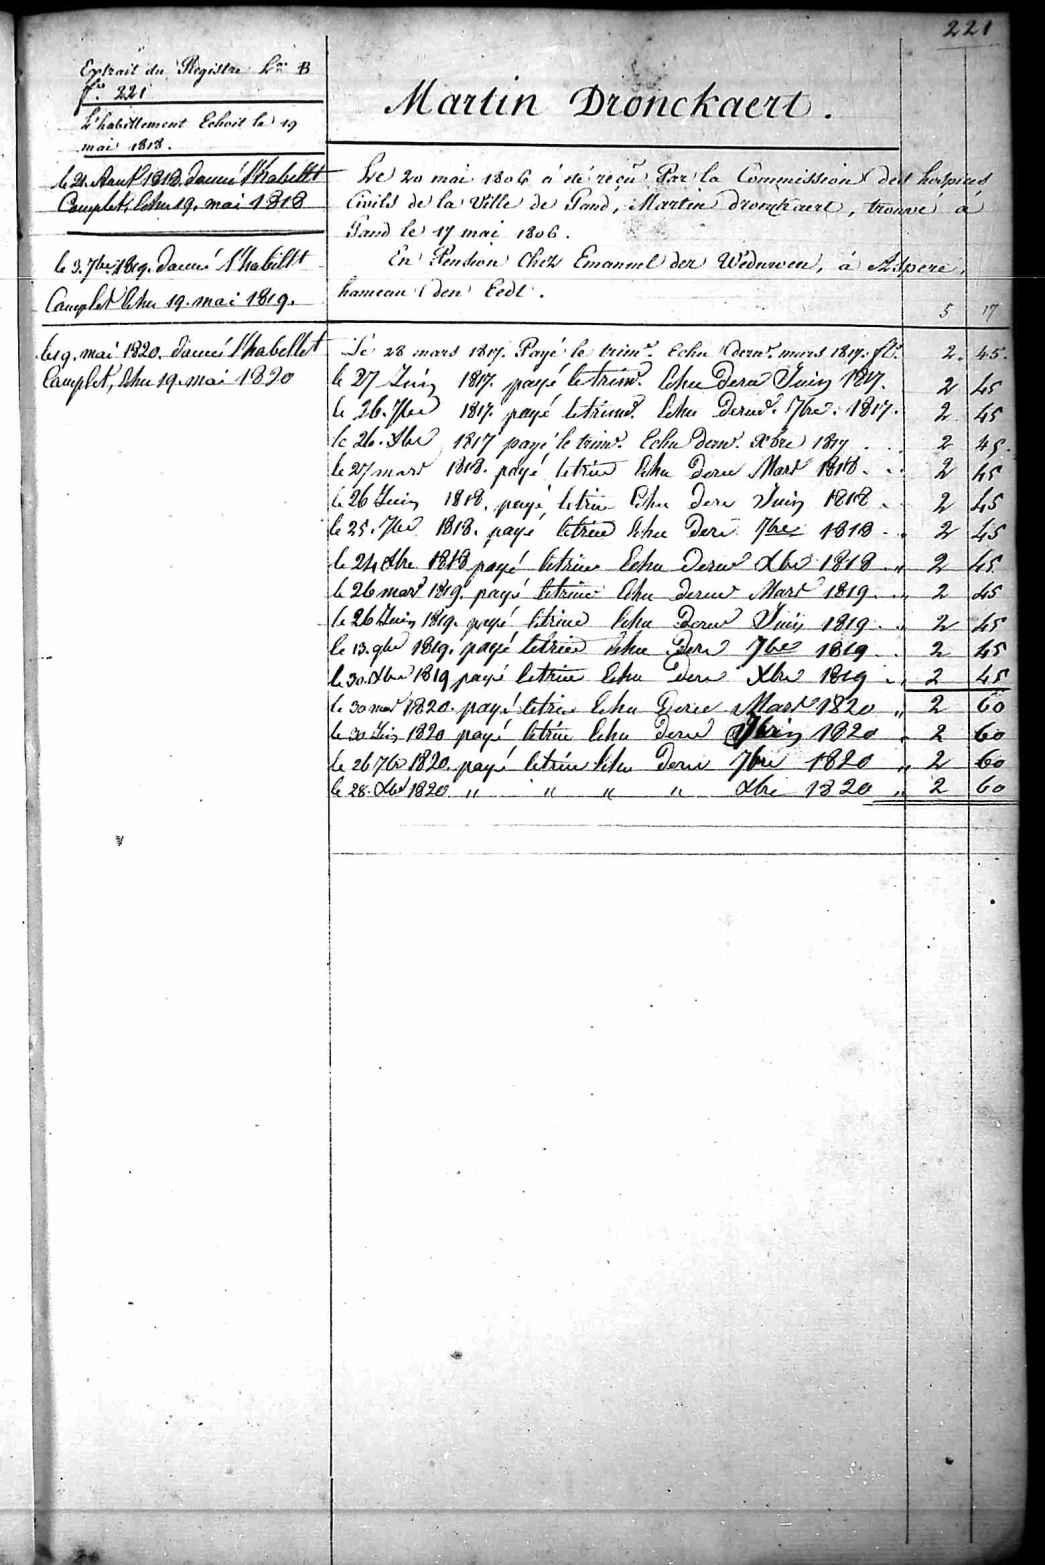 221
Extrait du Registre Lra B
fo. 221
L'habillement Echoit le 19
mai 1818.
le 21. Aout 1818. donné l'habillt
Complet, Echu 19. mai 1818
le 3. 7bre 1819. donné l'habillt
Complet Echu 19. mai 1819.
le 19. mai 1820. donné l'habillet
Complet, Echu 19. mai 1820
Martin Dronckaert.
Le 20 mai 1806 à été reçu Par la Commission des hospices
Civils de la Ville de Gand, Martin dronckaert, trouvé a
Gand le 17 mai 1806.
En Pension Chez Emanuel der Weduwen, à Aspere,
hameau den Eedt.
5 17
Le 28 mars 1817. Payé le trimre. Echu dernr. mars 1817. fl. 2. 45.
le 27 Juin 1817. payé le trimr. Echu dern Juin 1817. 2 45
le 26. 7bre 1817. payé le trimr. Echu dernr. 7bre. 1817. 2 45
le 26. Xbre 1817 payé le trimr. Echu dernr. Xbre 1817 . . 2 45.
le 27 mars 1818. payé le trim Echu dern Mars 1818. . . 2 45
le 26 Juin 1818. payé le trim Echu dern Juin 1818 . 2 45
le 25. 7bre 1818. payé le trim Echu dern 7bre 1818 . . 2 45
le 24 Xbre 1818 payé le trim Echu dern Xbre 1818 . „ 2 45
le 26 mars 1819. payé le trim Echu dern Mars 1819 . „ 2 45
le 26 Juin 1819. payé le trim Echu dern Juin 1819 . „ 2 45
le 13. 9bre 1819. payé le trim Echu dern 7bre 1819 . . 2 45
le 30. Xbre 1819 payé le trim Echu dern Xbre 1819 „ 2 45
le 30 mars 1820. payé le trim Echu dern Mars 1820 „ 2 60
le 30 Juin 1820 payé le trim Echu dern Juin 1820 „ 2 60
le 26 7bre 1820. payé le trim Echu dern 7bre 1820 „ 2 60
le 28. Xbre 1820 „ „ „ „ Xbre 1820 „ 2 60